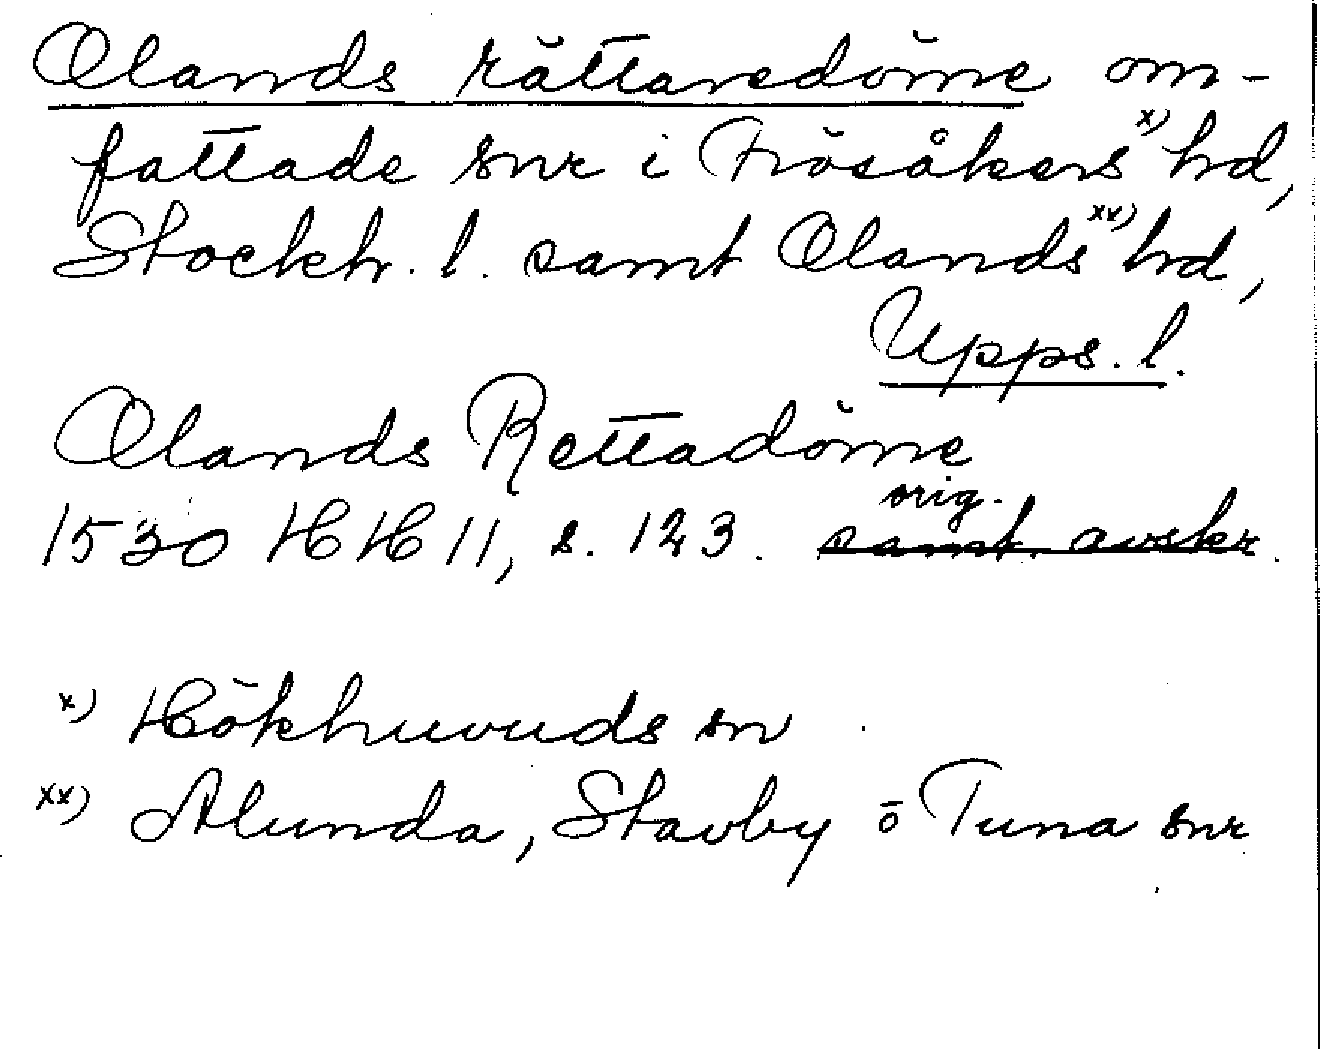 Olands rättaredöme om-
fattade snr i Frösåkers x) hd,
Stockh. l. samt Olands xx) hd,
Upps. l.
Olands Rettadöme
orig.
1530 HH 11, s. 123. samt. avskr.
x) Hökhuvuds sn
xx) Alunda, Stavby o Tuna snr